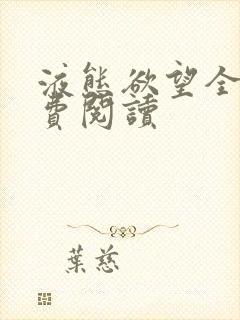 液態欲望全
費閱讀
葉慈